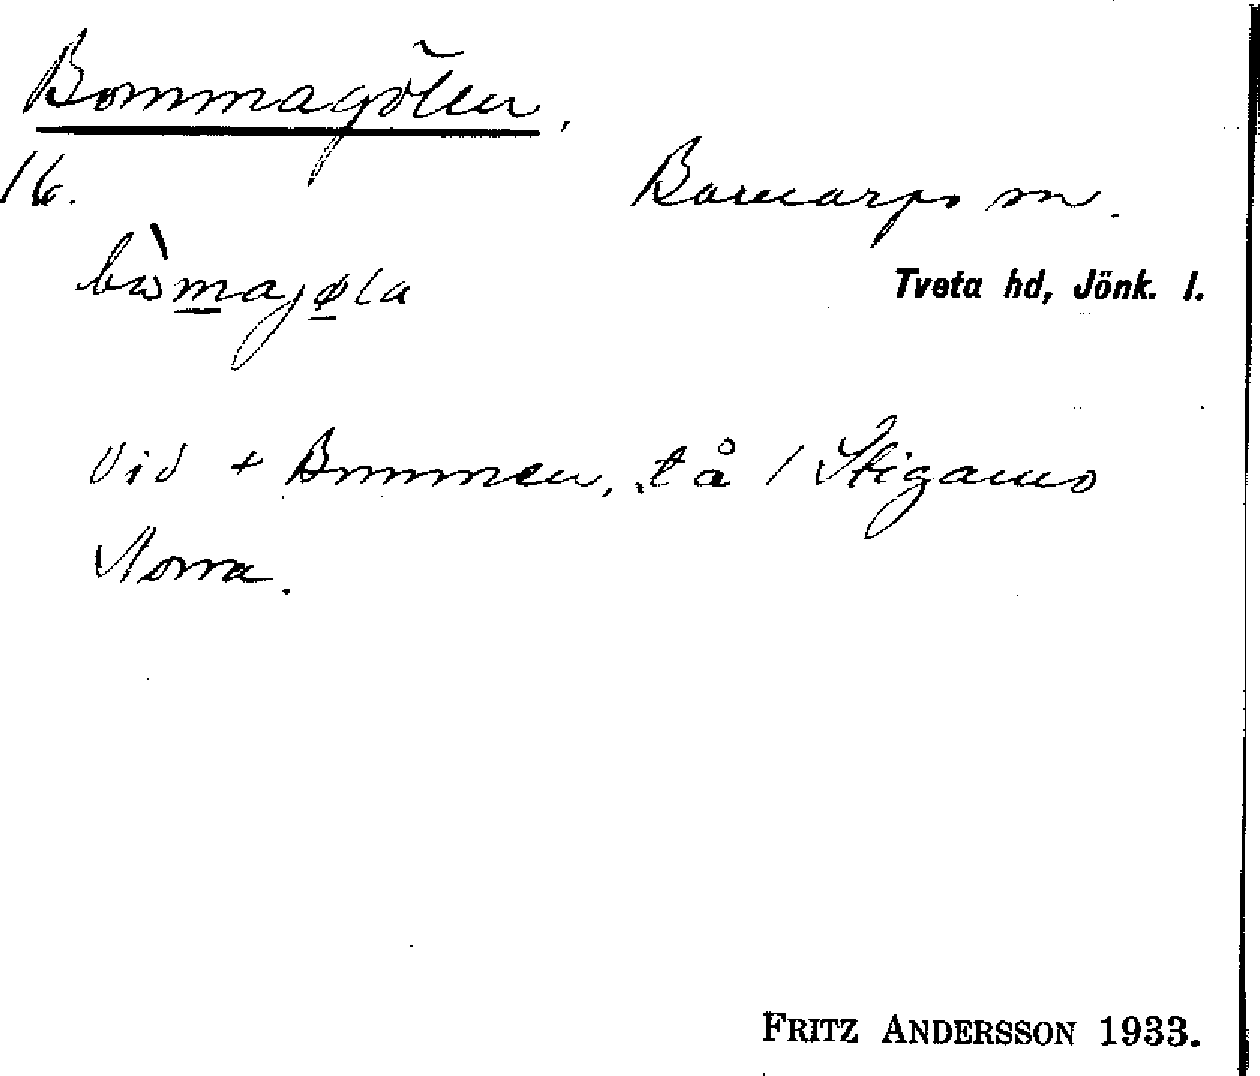 Bommagölen.
16.
Barnarps sn.
bòmajøla
Tveta hd, Jönk. l.
Vid + Bommen, tå / Stigamo
Norra.
FRITZ ANDERSSON 1933.